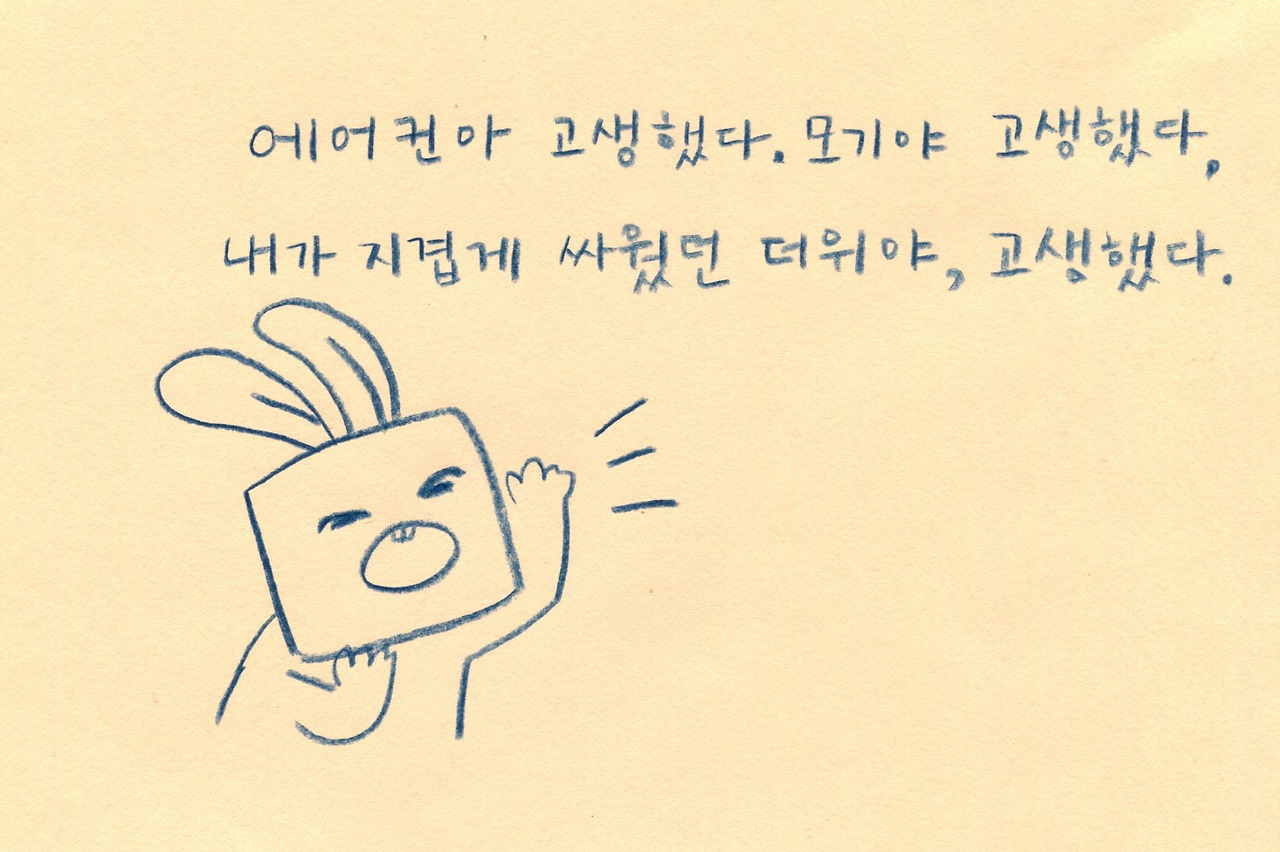 에어컨아 고생했다. 모기야 고생했다,
내가 지겹게 싸웠던 더위야, 고생했다.